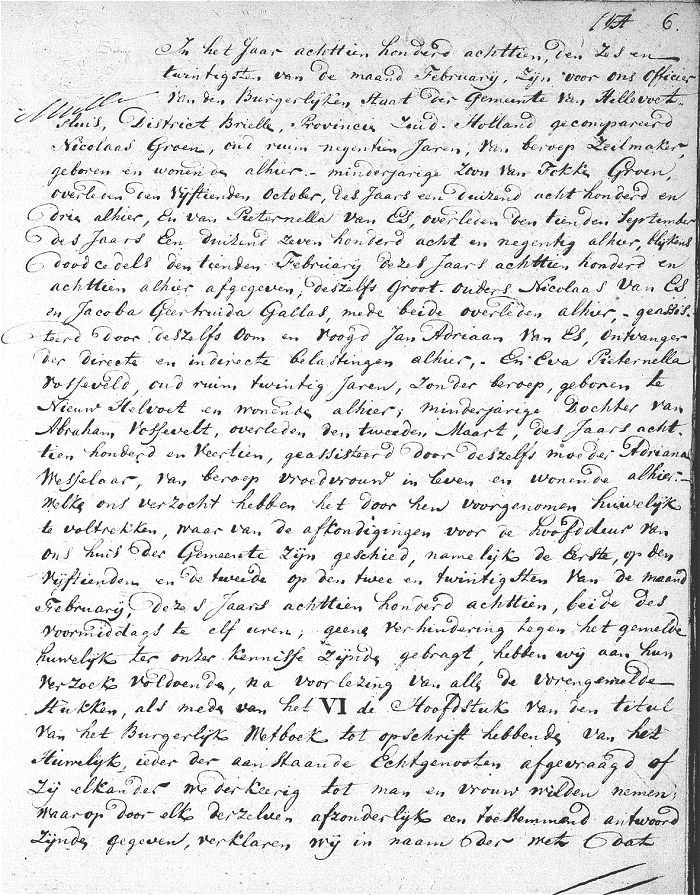 6.
In het Jaar achttien honderd achttien, den zes en
twintigsten van de maand February, Zijn voor ons Officier
van den Burgerlijken Staat der Gemeente van Hellevoet-
sluis, District Brielle, Provincie Zuid-Holland gecompareerd
Nicolaas Groen, oud ruim negentien Jaren, van beroep Zeilmaker,
geboren en wonende alhier,- minderjarige Zoon van Fokke Groen,
overleden den Vijftienden October, des Jaars een duizend acht honderd en
drie alhier, En van Pieternella van Es, overleden den tienden September
des Jaars Een duizend zeven honderd acht en negentig alhier, blijkens
doodcedels den tienden Februarij dezes Jaars achttien honderd en
achttien alhier afgegeven, deszelfs Groot-ouders Nicolaas van Es
en Jacoba Geertruida Gallas, mede beide overleden alhier,- geassis-
teerd door deszelfs Oom en voogd Jan Adriaan van Es, Ontvanger
der directe en indirecte belastingen alhier,- En Eva Pieternella
Vosseveld, oud ruim twintig Jaren, Zonder beroep, geboren te
Nieuw Helvoet en wonende alhier; minderjarige Dochter van
Abraham Vossevelt, overleden den tweeden Maart, des Jaars acht-
tien honderd en Veertien, geassisteerd door deszelfs moeder Adriana
Wesselaar, van beroep vroedvrouw in leven en wonende alhier.-
Welke ons verzocht hebben het door hen voorgenomen huwelijk
te voltrekken, waar van de afkondigingen voor de hoofddeur van
ons huis der Gemeente Zijn geschied, namelijk de Eerste, op den
vijftienden en de tweede op den twee en twintigsten van de maand
Februarij dezes Jaars achttien honderd achttien, beide des
voormiddags te elf uren; geene verhindering tegen het gemelde
huwelijk ter onzer kennisse Zijnde gebragt, hebben wij aan hun
verzoek voldoende, na voorlezing van alle de vorengemelde
Stukken, als mede van het VI de Hoofdstuk van den titul
van het Burgerlijk Wetboek tot opschrift hebbende van het
Huwelijk, ieder der aanstaande Echtgenooten afgevraagd of
Zij elkander wederkeerig tot man en vrouw wilden nemen;
waarop door elk derzelven afzonderlijk een toestemmend antwoord
Zijnde gegeven, verklaren wij in naam der wet, dat